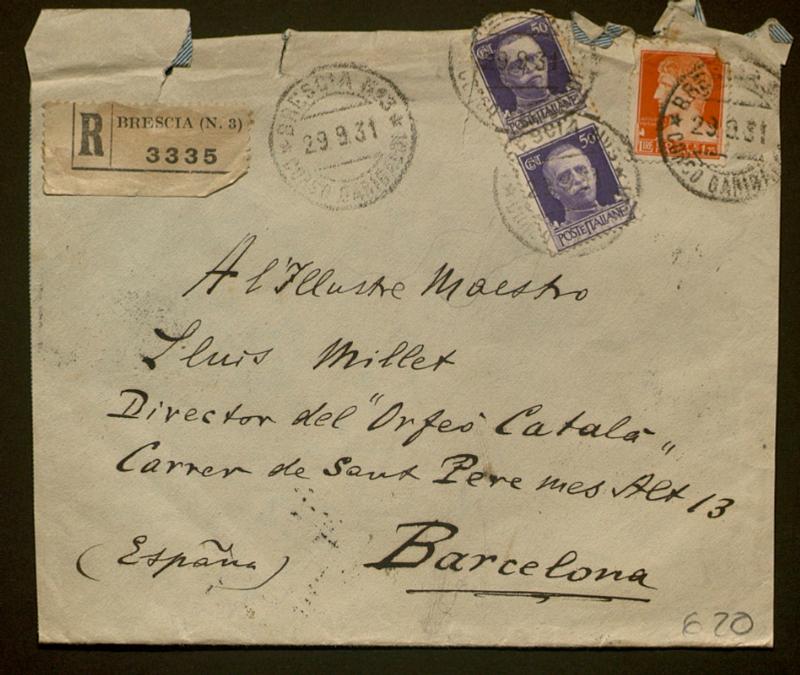 R BRESCIA (N. 3)
3335
BRESCIA N.3
29 9.31
CORSO GARIBALDI
50
CENT
POSTE ITALIANE
CENT 50
POSTE ITALIANE
29.9.31
A l'Illustre Maestro
Lluis Millet
Director del "Orfeó Català„
Carrer de Sant Pere mes Alt 13
(España) Barcelona
620